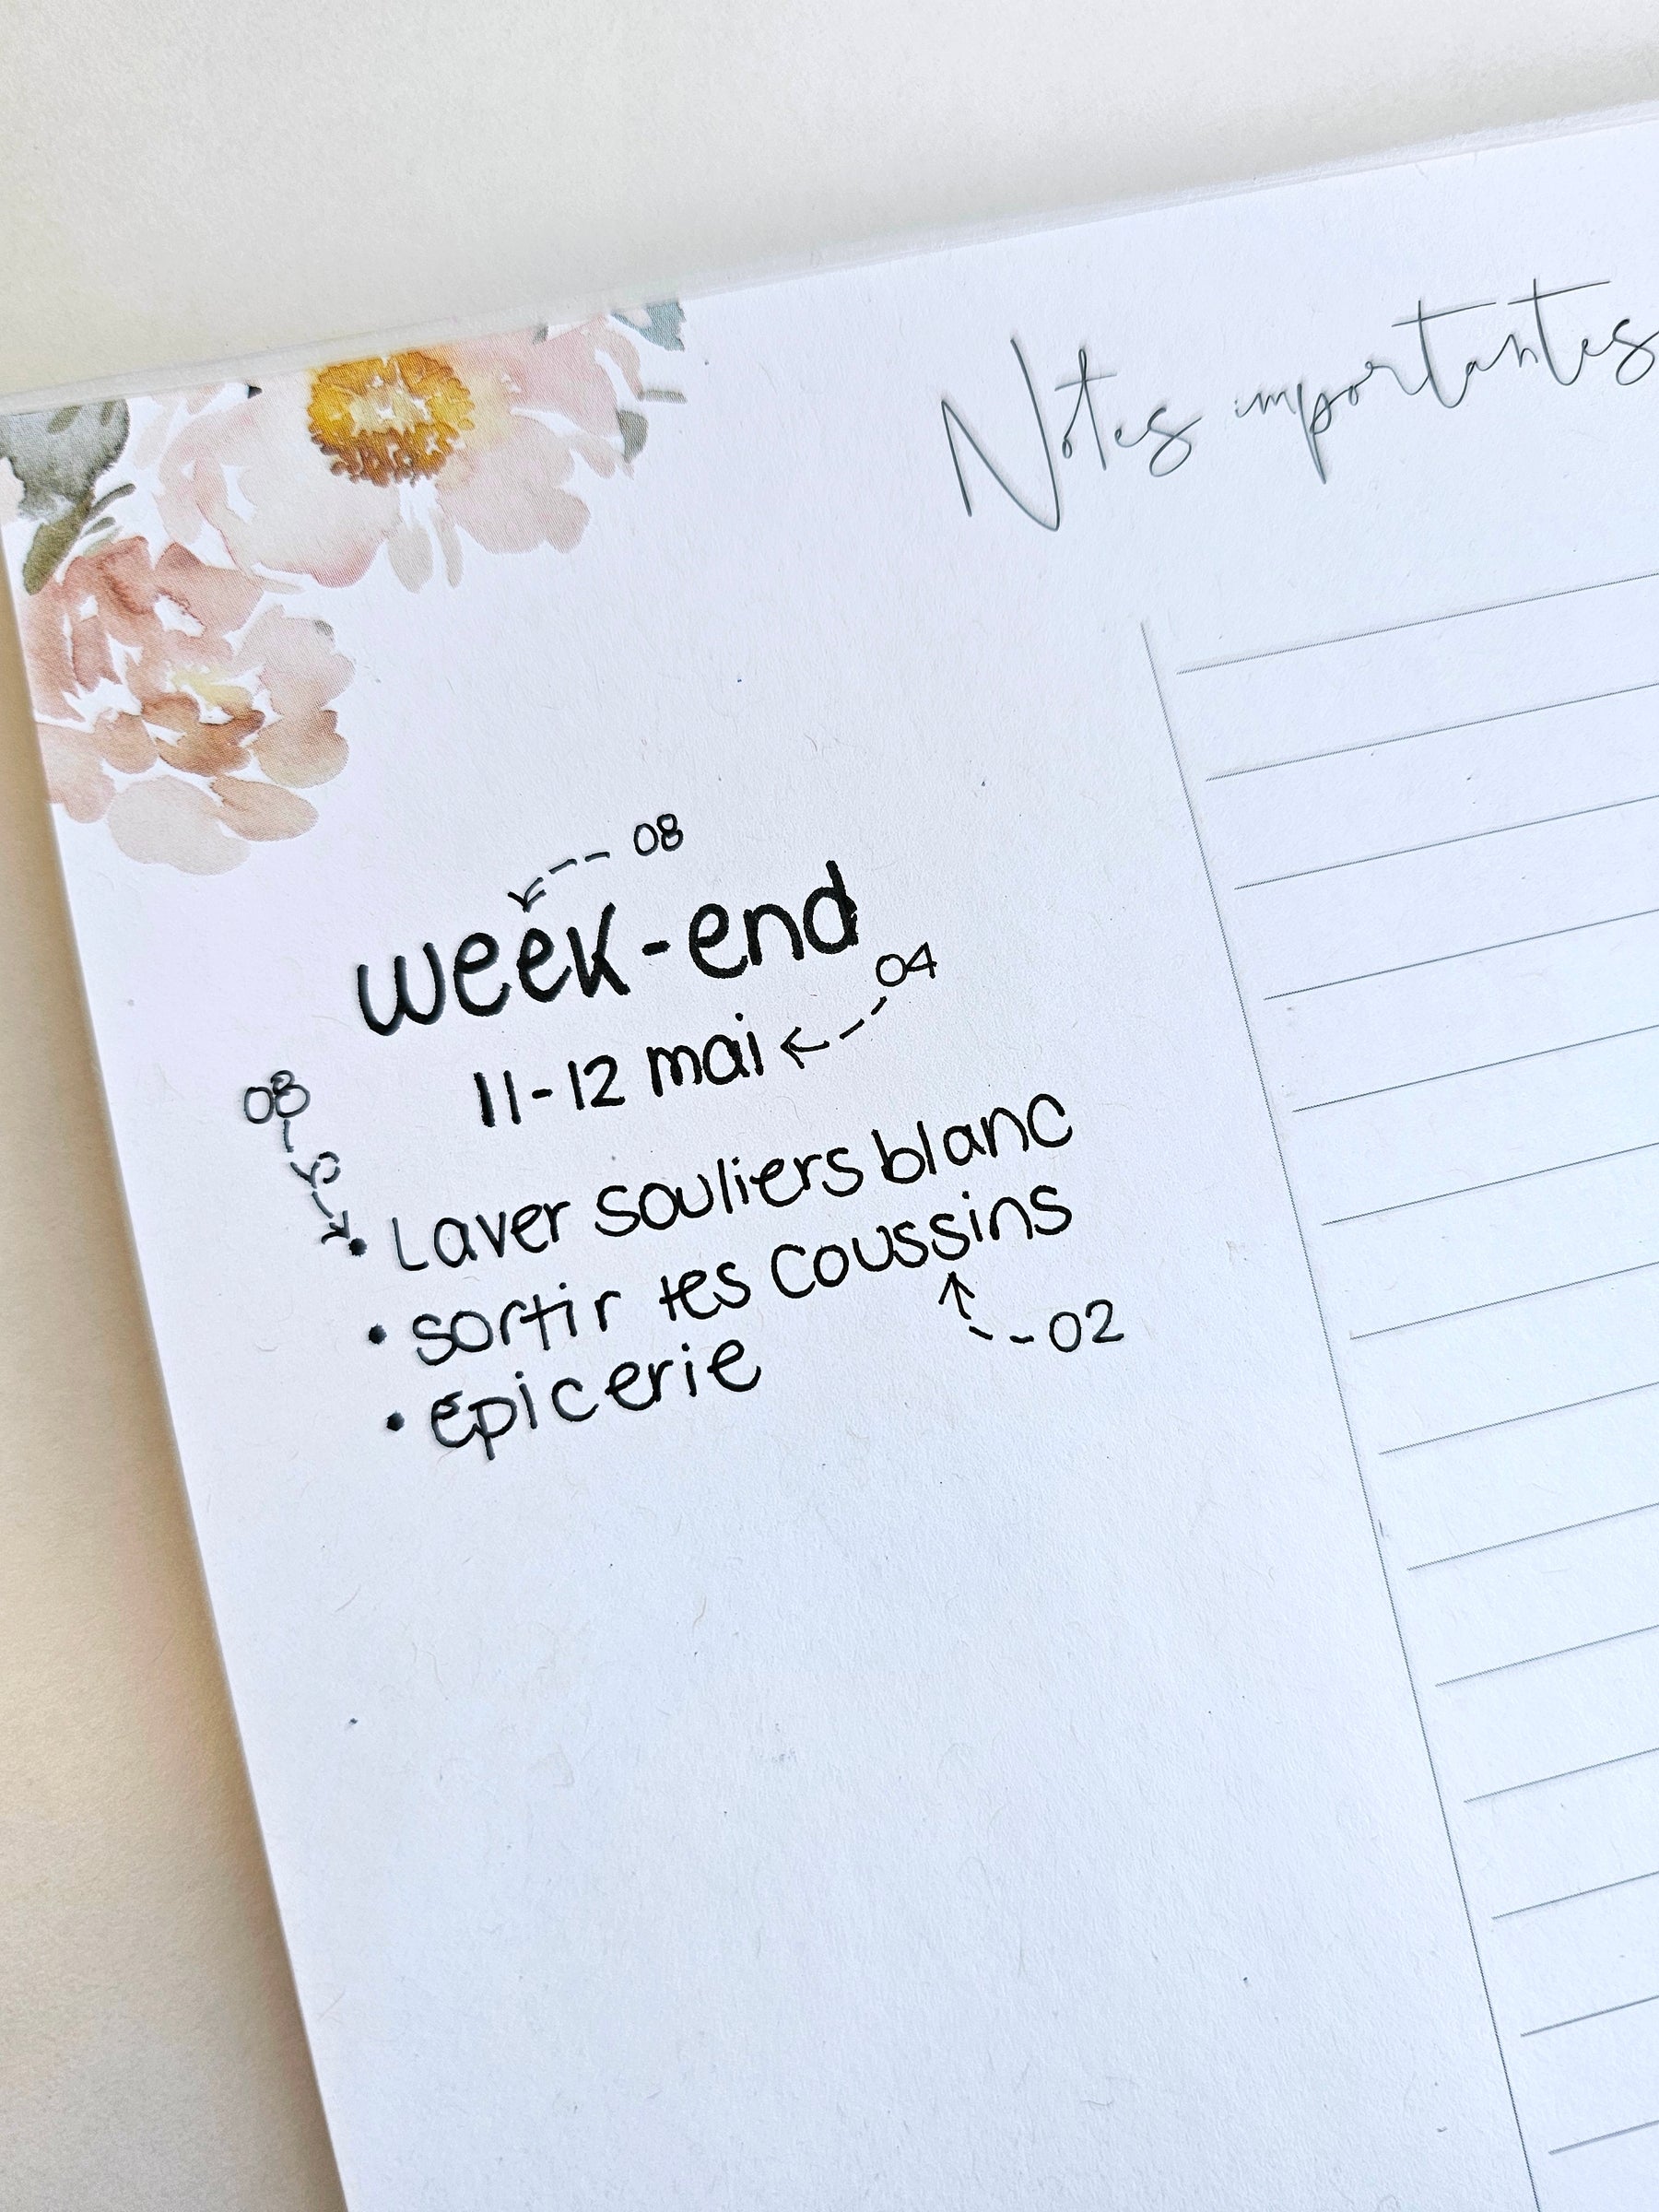 Notes importantes
08
week-end
04
11-12 mai
08
• Laver souliers blanc
• sortir les coussins
02
• épicerie